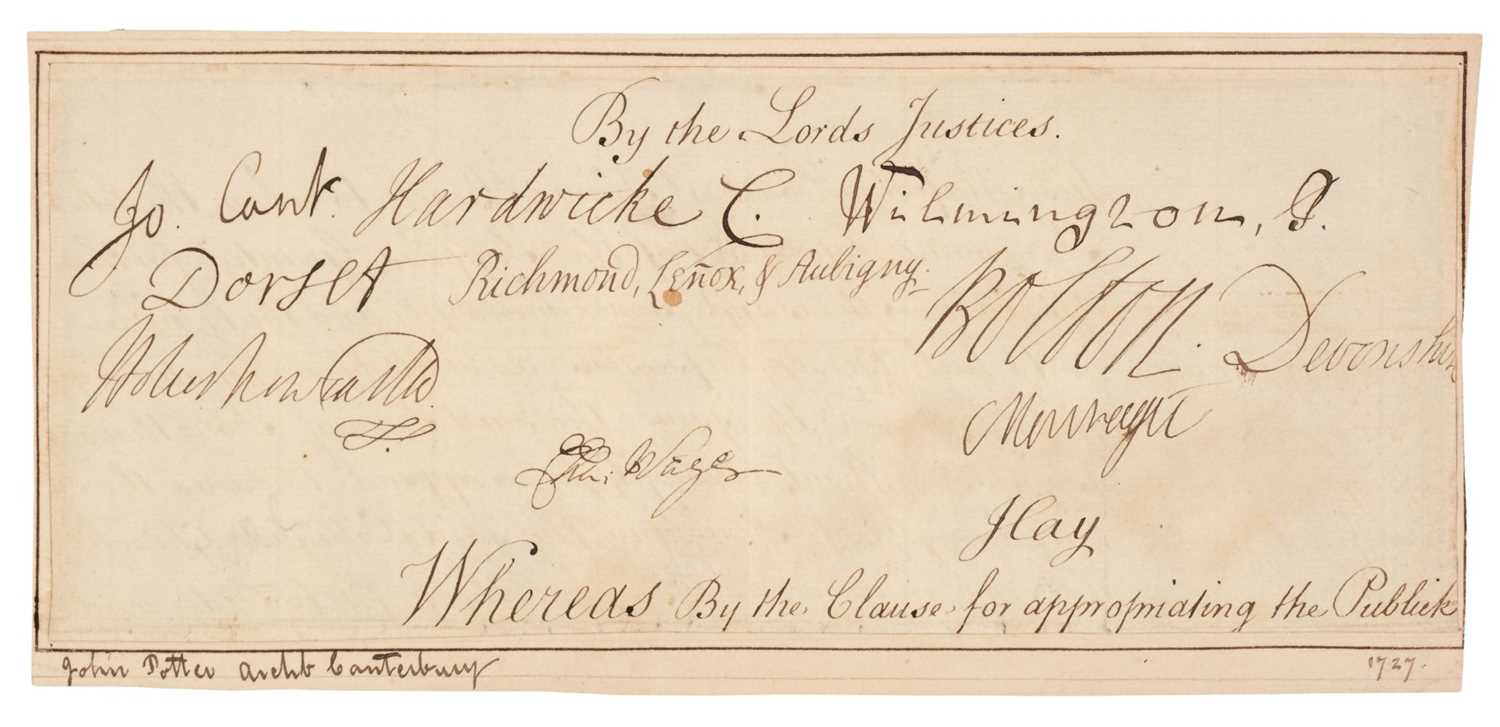 By the Lords Justices.
Jo. Cant. Hardwicke C. Wilmington, P.
Dorset Richmond, Lenox, & Aubigny. Bolton. Devonshire
Holles Newcastle Montagu
Cha: Wager
Ilay
Whereas By the Clause for appropriating the Publick
John Potter Archb Canterbury 1727.